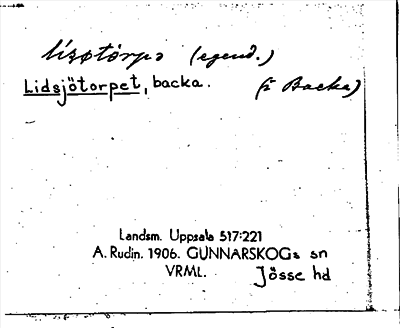 (egend.)
Lidsjötorpet, backa. (i Backa)
Landsm. Uppsala 517:221
A. Rudin. 1906. GUNNARSKOGs sn
VRML. Jösse hd